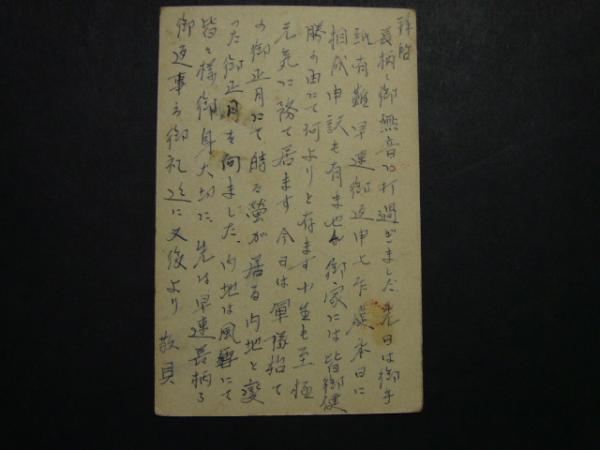 拝啓
長柄く御無音に打過ぎました 先日は御手
紙有難 早速御返申しを 本日に
相成申訳も有ません 御家には皆御健
勝の由にて何よりと存ます 小生も至極
元気に務て居ます 今日は軍隊始て
の御正月にて 時る螢が居る 内地と変
った御正月を向ました 内地は風雪にて
皆々様御身大切に 先は早速長柄る
御返事る御礼迄に 又後より 敬具